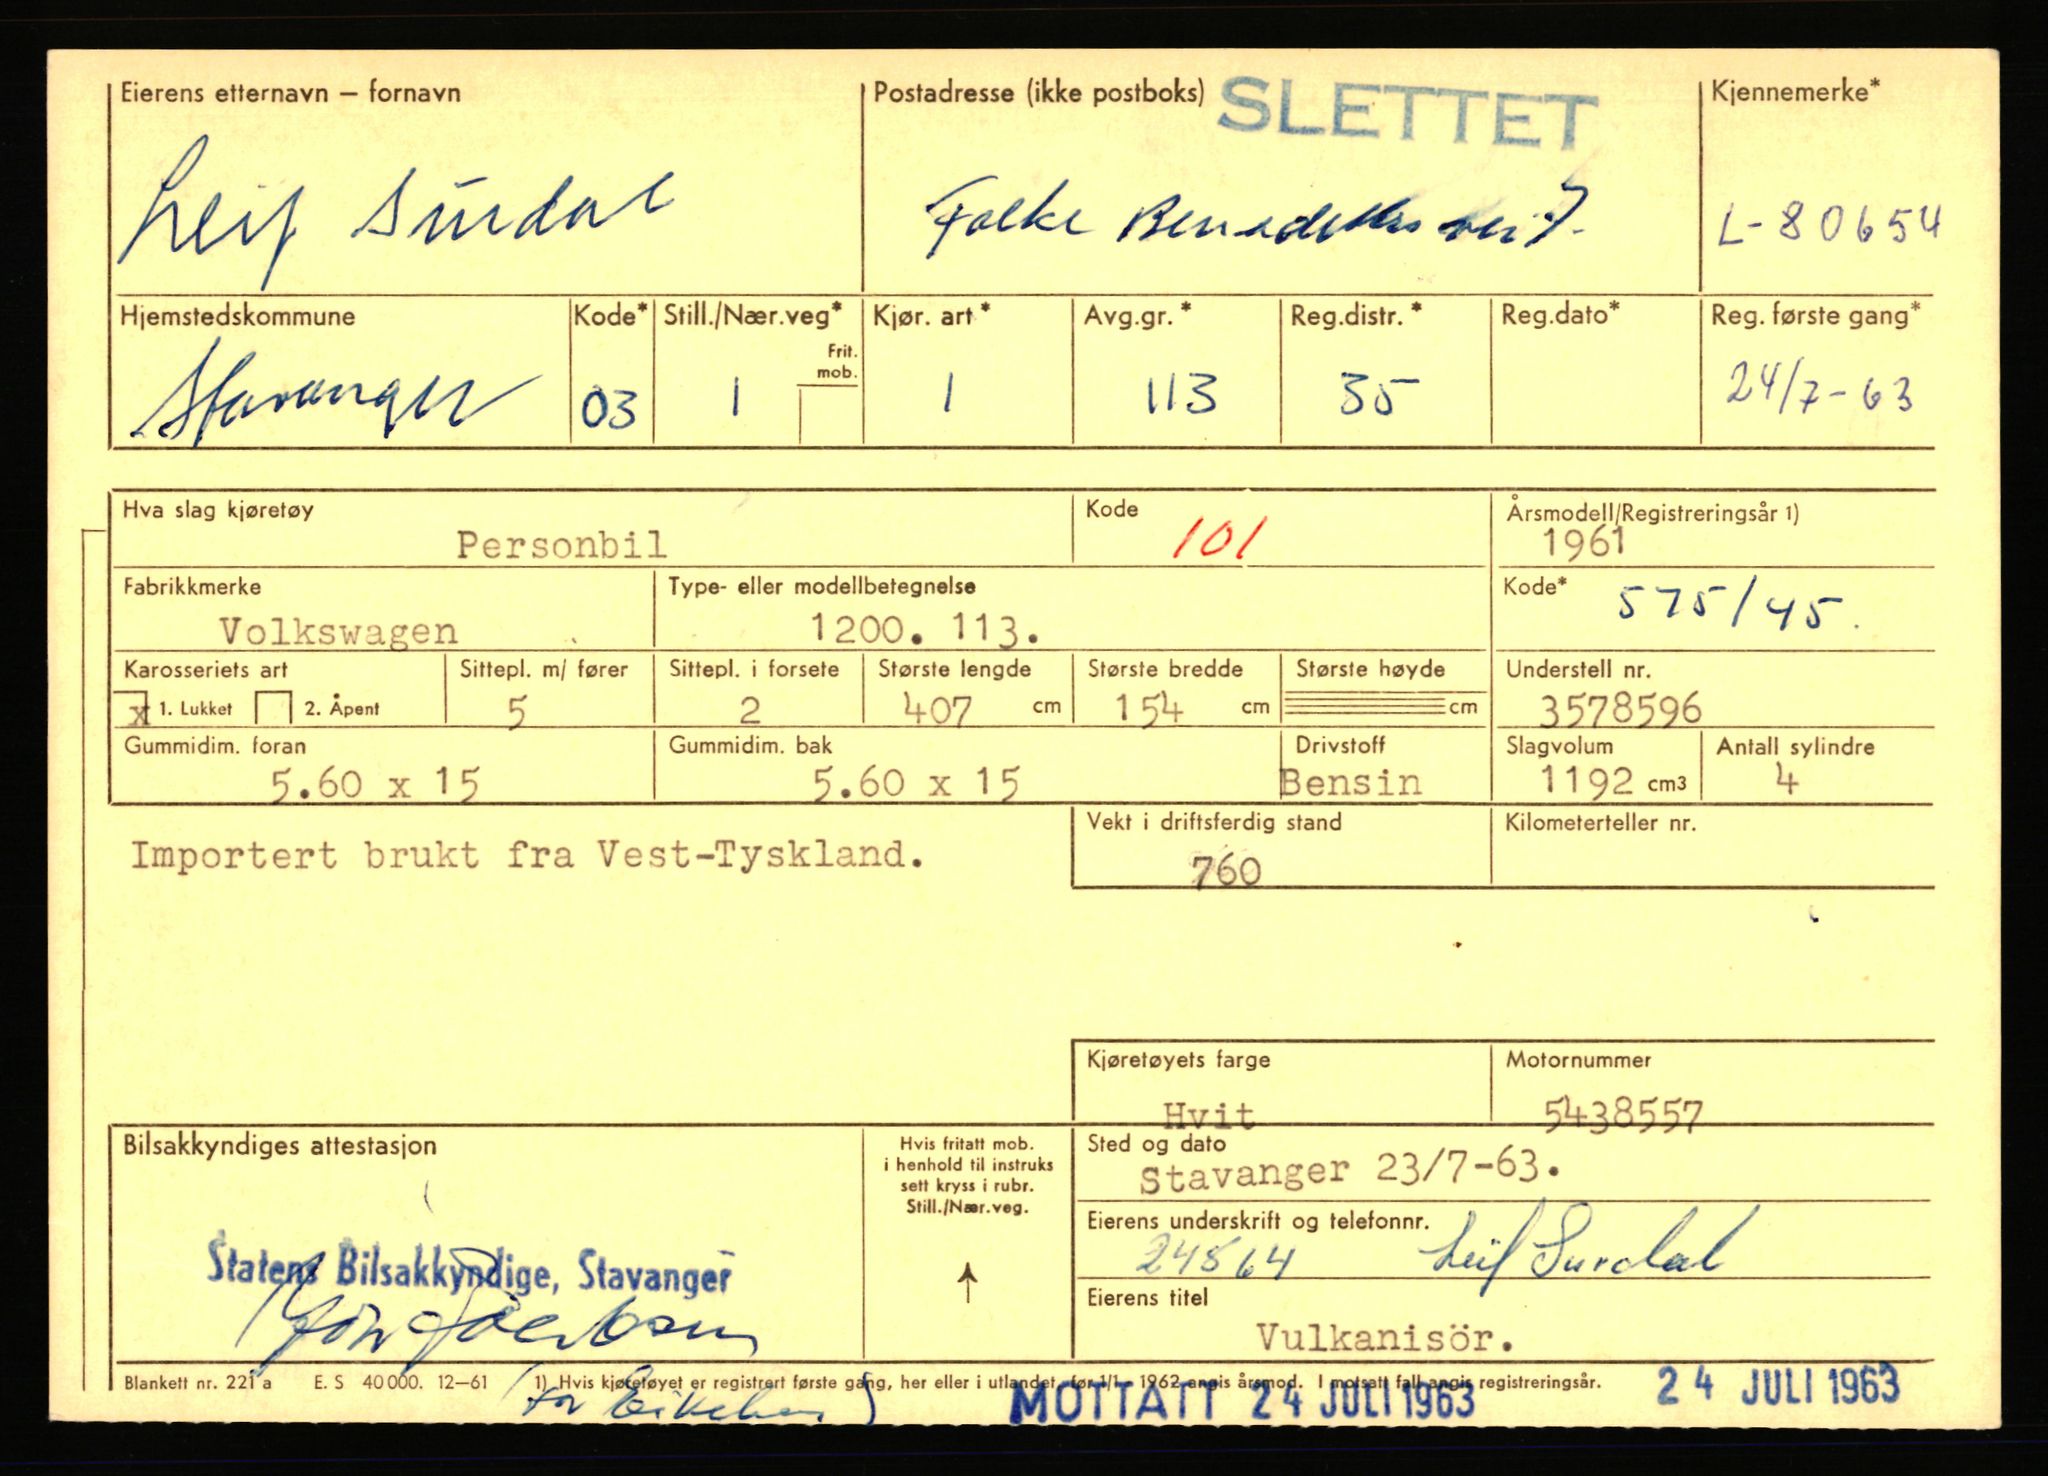 Eierens etternavn – fornavn
Postadresse (ikke postboks) SLETTET
Kjennemerke*
Leif Surdal
Folke Bernadottes vei 7.
L-80654
Hjemstedskommune
Kode*
Still./Nær.veg*
Kjør. art*
Avg.gr.*
Reg.distr.*
Reg.dato*
Reg. første gang*
Frit. mob.
Stavanger
03
1
1
113
35
24/7-63
Hva slag kjøretøy
Personbil
Kode
101
Årsmodell/Registreringsår 1)
1961
Fabrikkmerke
Volkswagen
Type- eller modellbetegnelse
1200. 113.
Kode*
575/45.
Karosseriets art
x 1. Lukket 2. Åpent
Sittepl. m/ fører
5
Sittepl. i forsete
2
Største lengde
407 cm
Største bredde
154 cm
Største høyde
cm
Understell nr.
3578596
Gummidim. foran
5.60 x 15
Gummidim. bak
5.60 x 15
Drivstoff
Bensin
Slagvolum
1192 cm3
Antall sylindre
4
Importert brukt fra Vest-Tyskland.
Vekt i driftsferdig stand
760
Kilometerteller nr.
Kjøretøyets farge
Hvit
Motornummer
5438557
Bilsakkyndiges attestasjon
Statens Bilsakkyndige, Stavanger
Hvis fritatt mob.
i henhold til instruks
sett kryss i rubr.
Still./Nær.veg.
Sted og dato
Stavanger 23/7-63.
Eierens underskrift og telefonnr.
24564 Leif Surdal
Eierens titel
Vulkanisör.
Blankett nr. 221 a E. S 40000. 12–61 1) Hvis kjøretøyet er registrert første gang, her eller i utlandet, før 1/1 – 1962 angis årsmod. I motsatt fall angis registreringsår.
MOTTATT 24 JULI 1963
24 JULI 1963